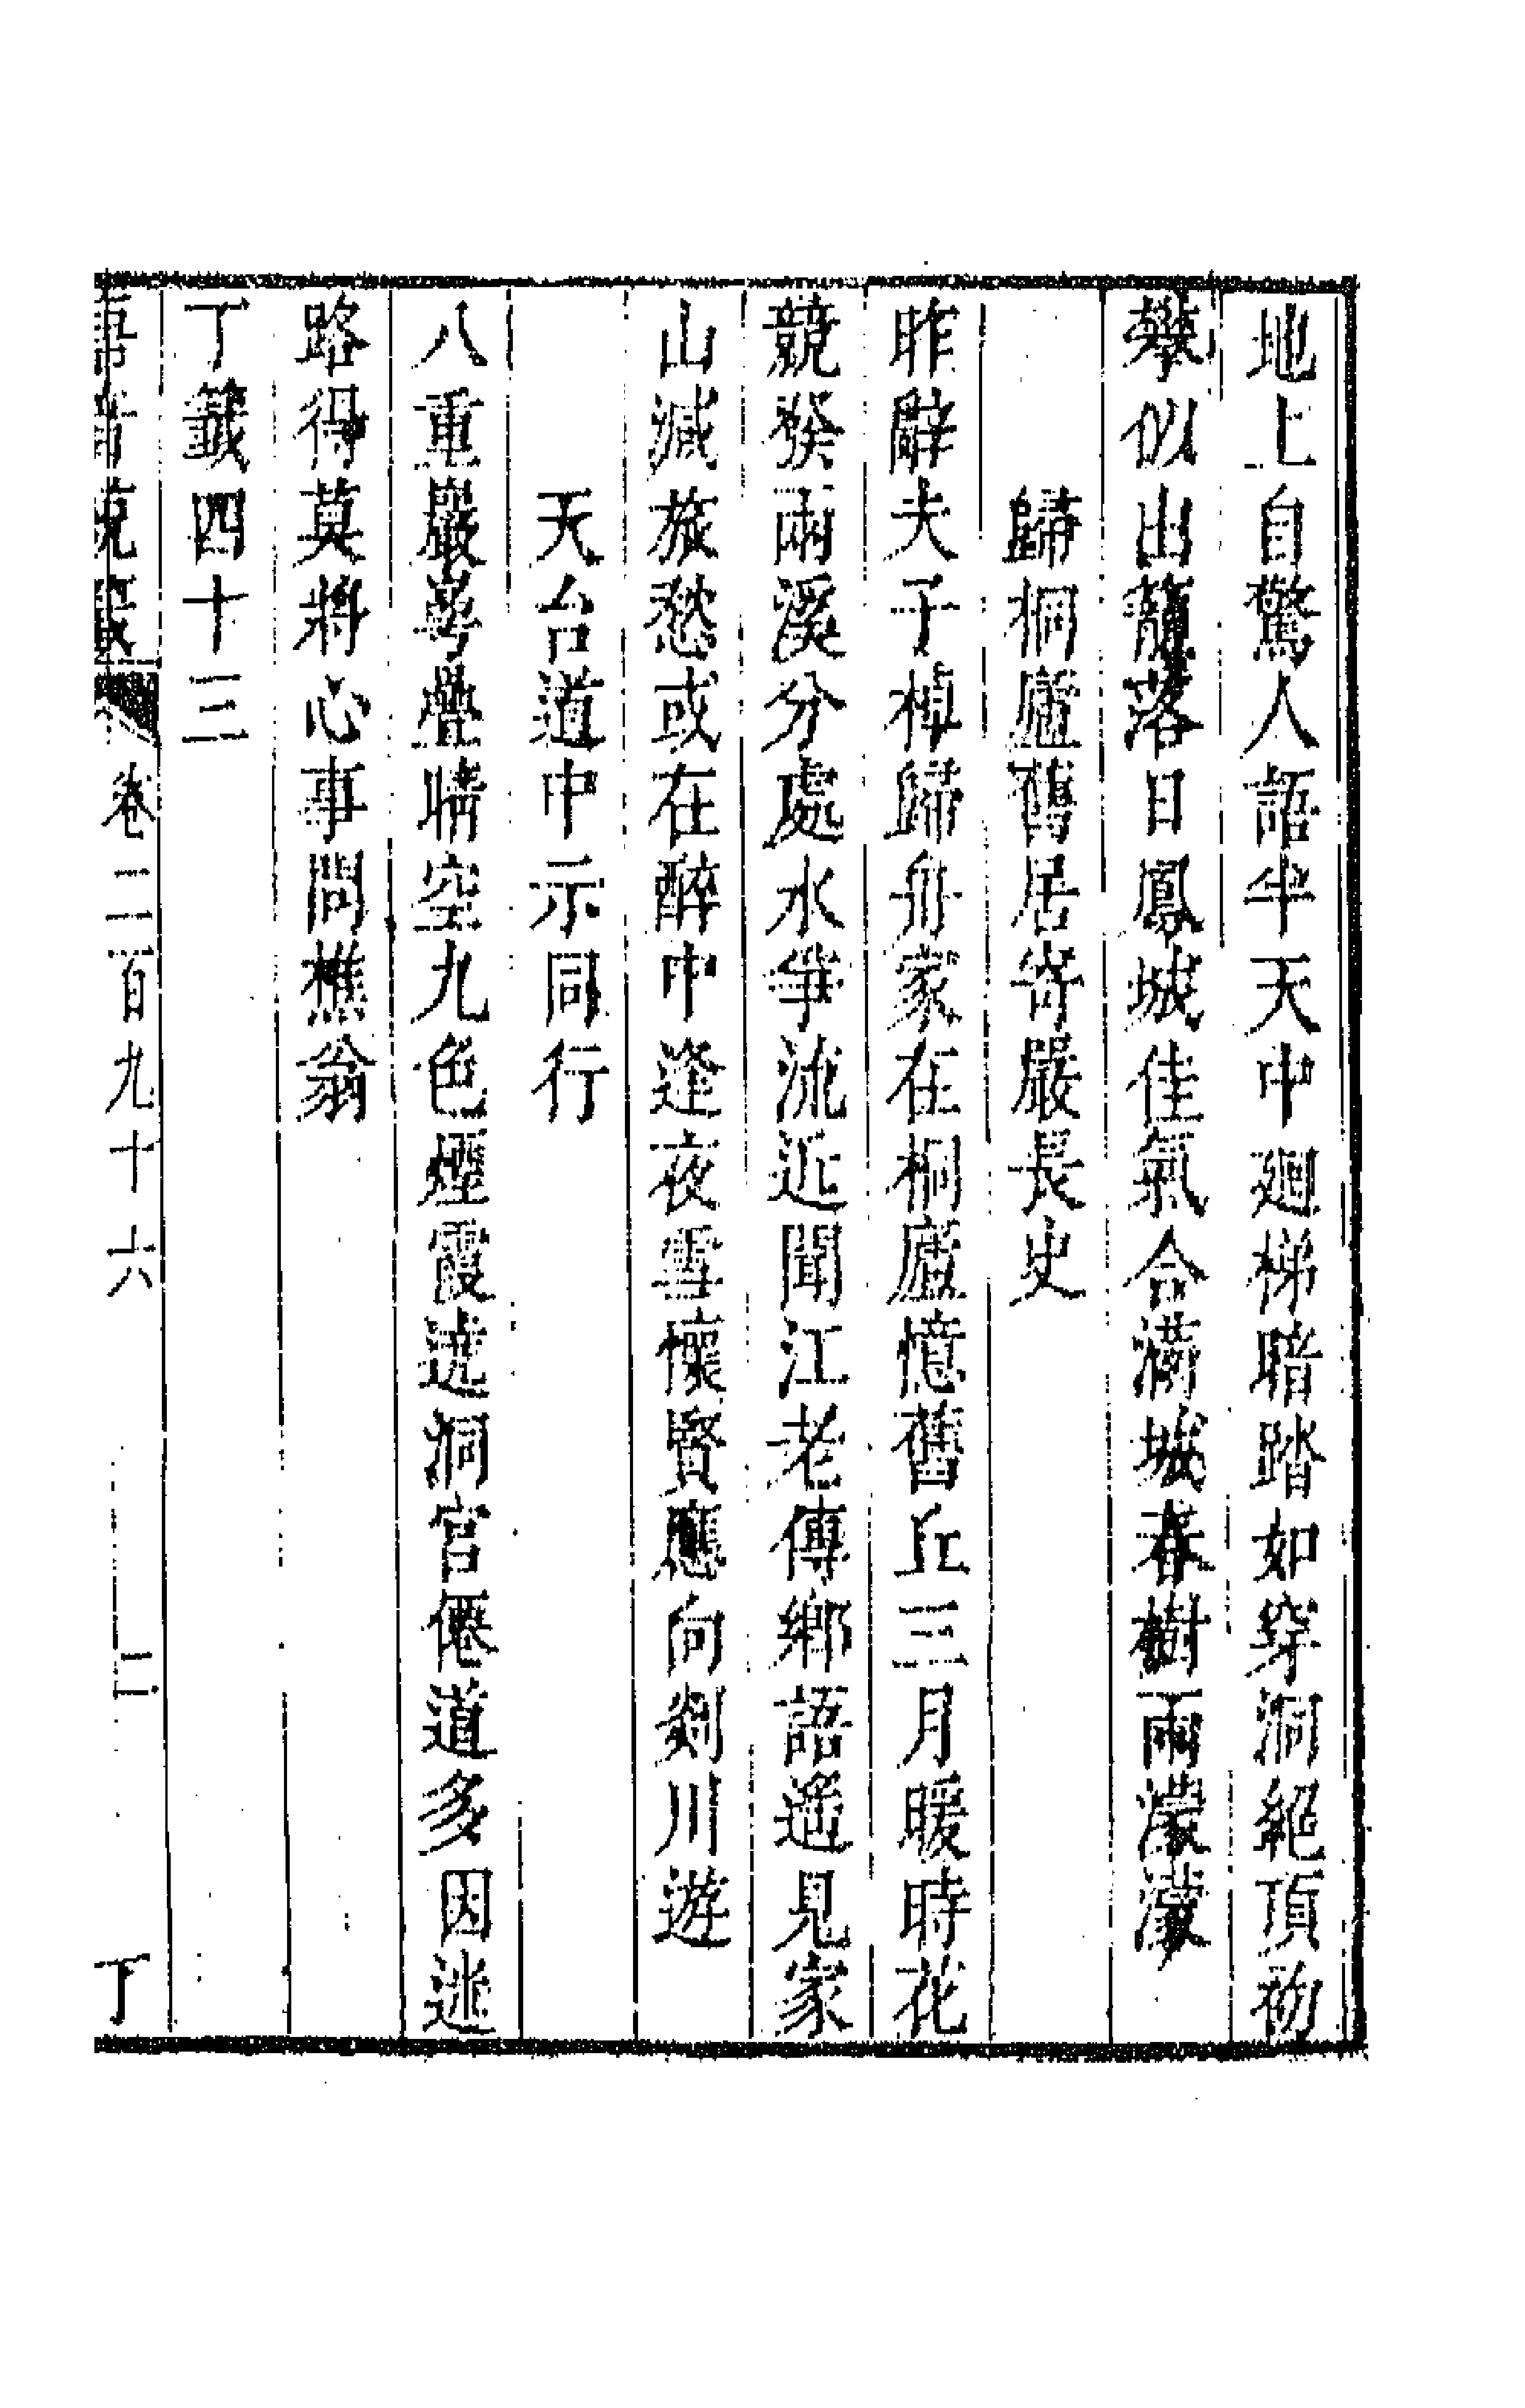 地上自驚人語半天中廻梯暗踏如穿洞絕頂初
攀似出籠落日鳳城佳氣合滿城春樹雨濛濛
歸桐廬舊居寄嚴長史
昨辭夫子棹歸舟家在桐廬憶舊丘三月暖時花
競發兩溪分處水爭流近聞江老傳鄉語遥見家
山減旅愁或在醉中逢夜雪懷賢應向剡川遊
天台道中示同行
八重巖崿疊晴空九色煙霞遶洞宮僊道多因迷
路得莫將心事問樵翁
丁籖四十三
唐音統籖 卷二百九十六 二 丁